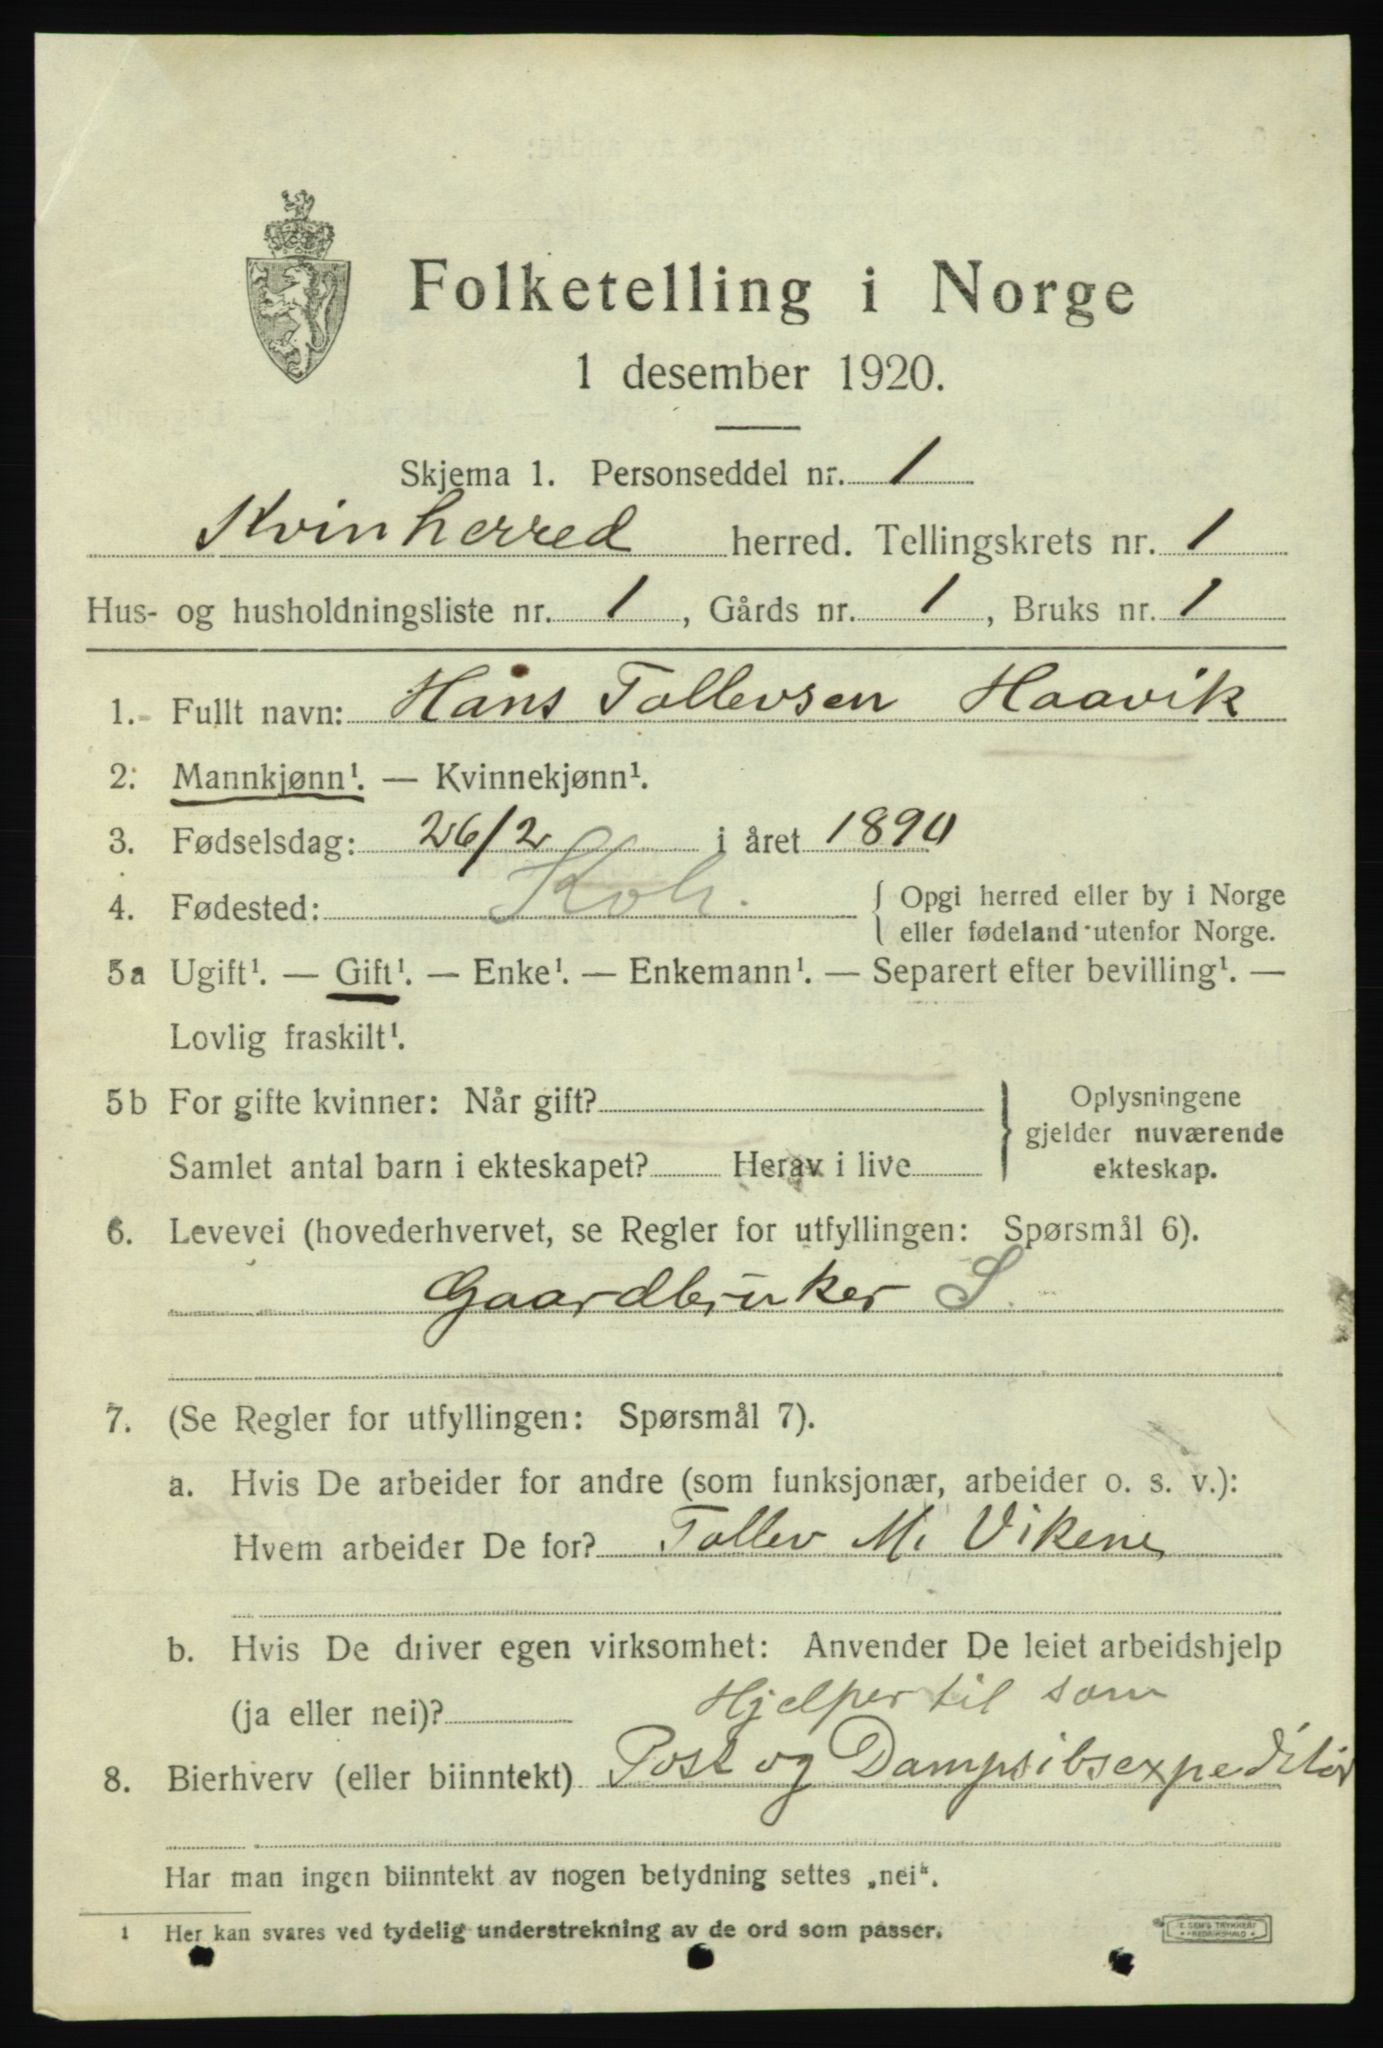 Folketelling i Norge
1 desember 1920.
Skjema 1. Personseddel nr. 1
Kvinherred herred. Tellingskrets nr. 1
Hus- og husholdningsliste nr. 1, Gårds nr. 1, Bruks nr. 1
1. Fullt navn: Hans Tollevsen Haavik
2. Mannkjønn¹. — Kvinnekjønn¹.
3. Fødselsdag: 26/2 i året 1890
4. Fødested: Kvh. { Opgi herred eller by i Norge
eller fødeland utenfor Norge.
5a Ugift¹. — Gift¹. — Enke¹. — Enkemann¹. — Separert efter bevilling¹. —
Lovlig fraskilt¹.
5b For gifte kvinner: Når gift? } Oplysningene
gjelder nuværende
Samlet antal barn i ekteskapet? Herav i live ekteskap.
6. Levevei (hovederhvervet, se Regler for utfyllingen: Spørsmål 6).
Gaardbruker S.
7. (Se Regler for utfyllingen: Spørsmål 7).
a. Hvis De arbeider for andre (som funksjonær, arbeider o. s. v.):
Hvem arbeider De for? Tollev M. Vikene
b. Hvis De driver egen virksomhet: Anvender De leiet arbeidshjelp
(ja eller nei)? Hjelper til som
8. Bierhverv (eller biinntekt) Post og Dampsibsexpeditør
Har man ingen biinntekt av nogen betydning settes „nei“.
1 Her kan svares ved tydelig understrekning av de ord som passer.